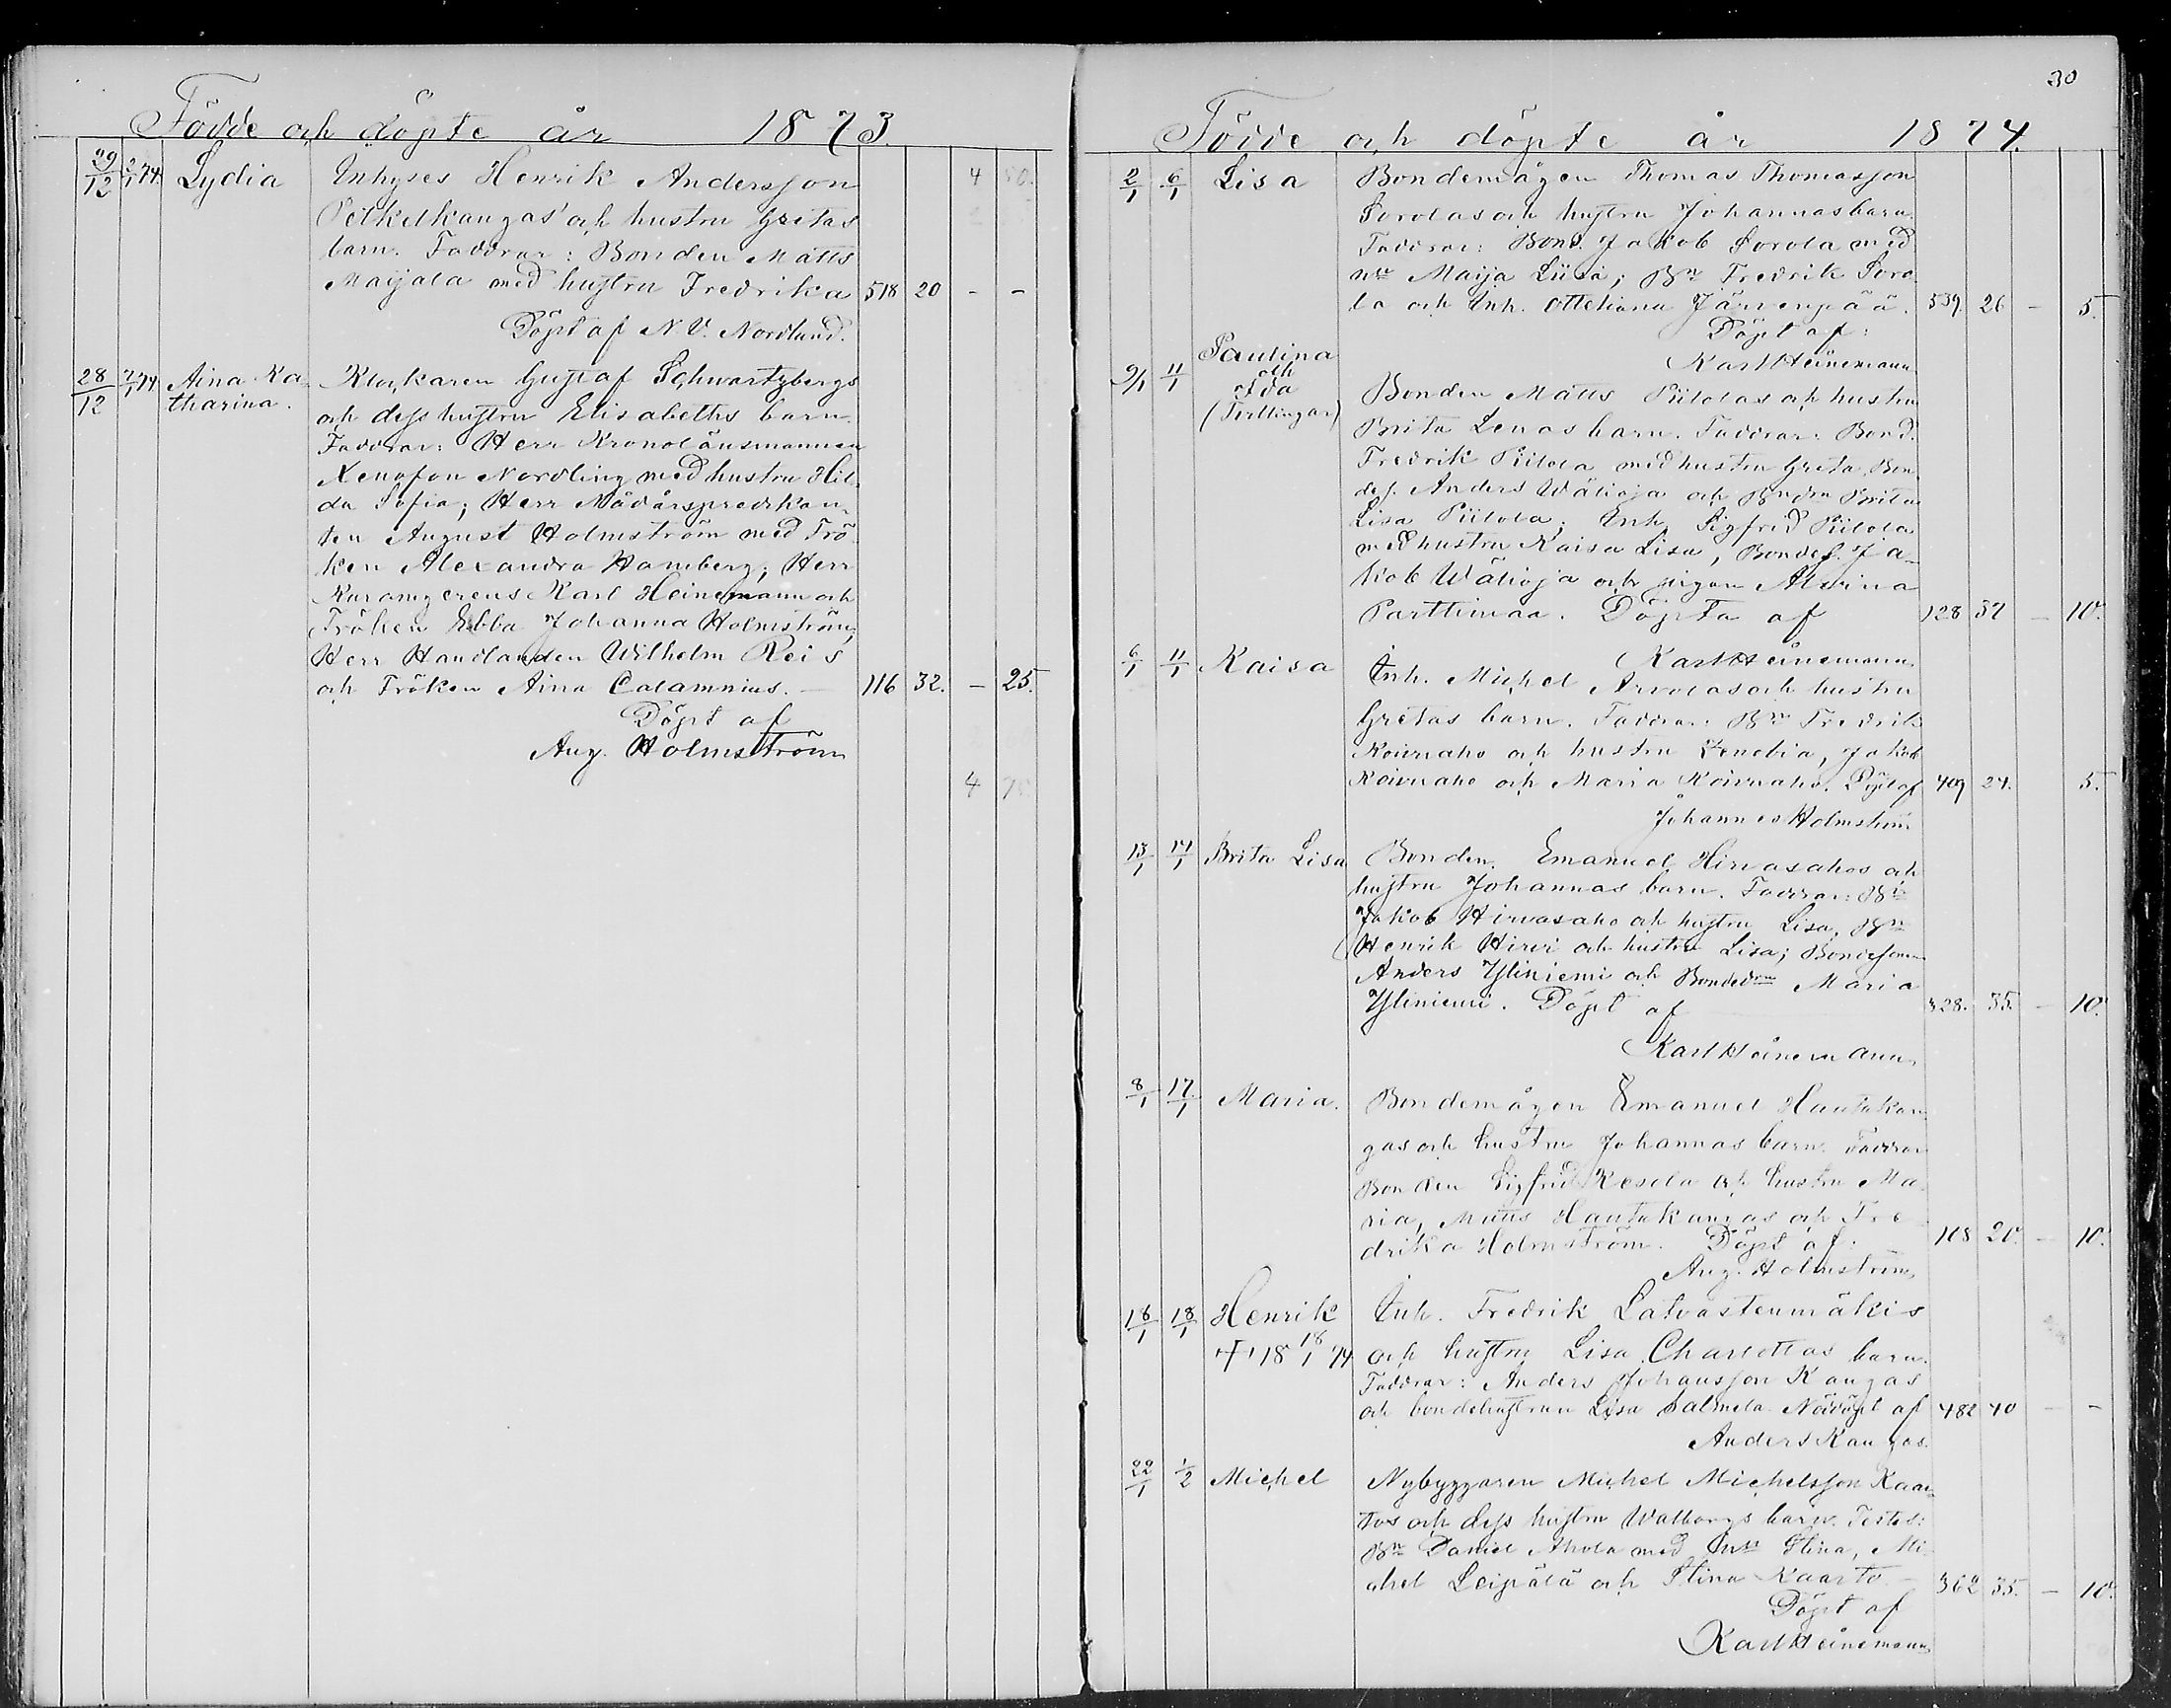 Födde och döpte år 1873.
29/12 2/1 74. Lydia Inhyses Henrik Andersson
Petkelkangas' och hustru Gretas
barn. Faddrar: Bonden Matts
Maijala med hustru Fredrika 518 20 - -
Döpt af N. V. Nordlund.
28/12 7/1 74 Aina Ka- Klockaren Gustaf Schwartzbergs
tharina. och dess hustru Elisabeths barn.
Faddrar: Herr Kronolänsmannen
Xenofon Nordling med hustru Hil-
da Sofia; Herr Nådårspredikan-
ten August Holmström med Frö-
ken Alexandra Hamberg; Herr
Karl Heinemann och
Fröken Ebba Johanna Holmström;
Herr Handlanden Wilhelm Reis
och Fröken Aina Calamnius. 116 32. - 25.
Döpt af
Aug. Holmström
4 70
30
Födde och döpte år 1874.
2/1 6/1 Lisa Bondemågen Thomas Thomasson
Sorolas och hustru Johannas barn.
Faddrar: Bond. Jakob Sorola med
Maija Liisa; Bn Fredrik Soro-
la och Inh. Järvenpää. 539. 26 - 5.
Döpt af:
Karl Heinemann
9/1 11/1 Paulina
och
Ida
(Tvillingar)
Bonden Matts Piilolas och hustru
Brita Lenas barn. Faddrar: Bond.
Fredrik Piilola med hustru Greta, Bon-
des. Anders Wälioja och Brita
Lisa Piilola; Inh. Sigfrid Piilola
med hustru Kaisa Lisa, Bondes. Ja-
kob Wälioja och pigan
Parttimaa. Döpta af 128 37 - 10.
Karl Heinemann
6/1 11/1 Kaisa Inh. Michel Arvolas och hustru
Gretas barn. Faddrar: Bn Fredrik
Koivuaho och hustru Zenobia, Jakob
Koivuaho och Maria Koivuaho. Döpt af 409 24. 5.
Johannes Holmström
13/1 17/1 Brita Lisa Bonden Emanuel Hirvasahos och
hustru Johannas barn. Faddrar: Bn
Jakob Hirvasaho och hustru Lisa, Bn
Henrik Hirvi och hustru Lisa; Bondesonen
Anders Yliniemi och Maria
Yliniemi. Döpt af 328. 35. - 10.
Karl Heinemann
8/1 17/1 Maria. Bondemågen Emanuel Hautakan-
gas och hustru Johannas barn. Faddrar
Bonden Sigfrid Kesola och hustru Ma-
ria, Matts Hautakangas och Fre-
drika Holmström. Döpt af: 108 20. - 10.
Aug. Holmström
18/1 18/1 Henrik Inh. Fredrik Latvastenmäkis
+ 18 18/1 74 och hustru Lisa Charlottas barn.
Faddrar: Anders Johansson Kangas
och bondehustrun Lisa Salmela. Nöddöpt af 482 40 - -
Anders Kangas.
22/1 1/2 Michel Nybyggaren Michel Michelsson Kaar-
tos och dess hustru Walborgs barn. Testes:
Bn Daniel Ahola med Stina, Mi-
chel Leipälä och Stina Kaarto 362 35. - 10.
Döpt af
Karl Heinemann